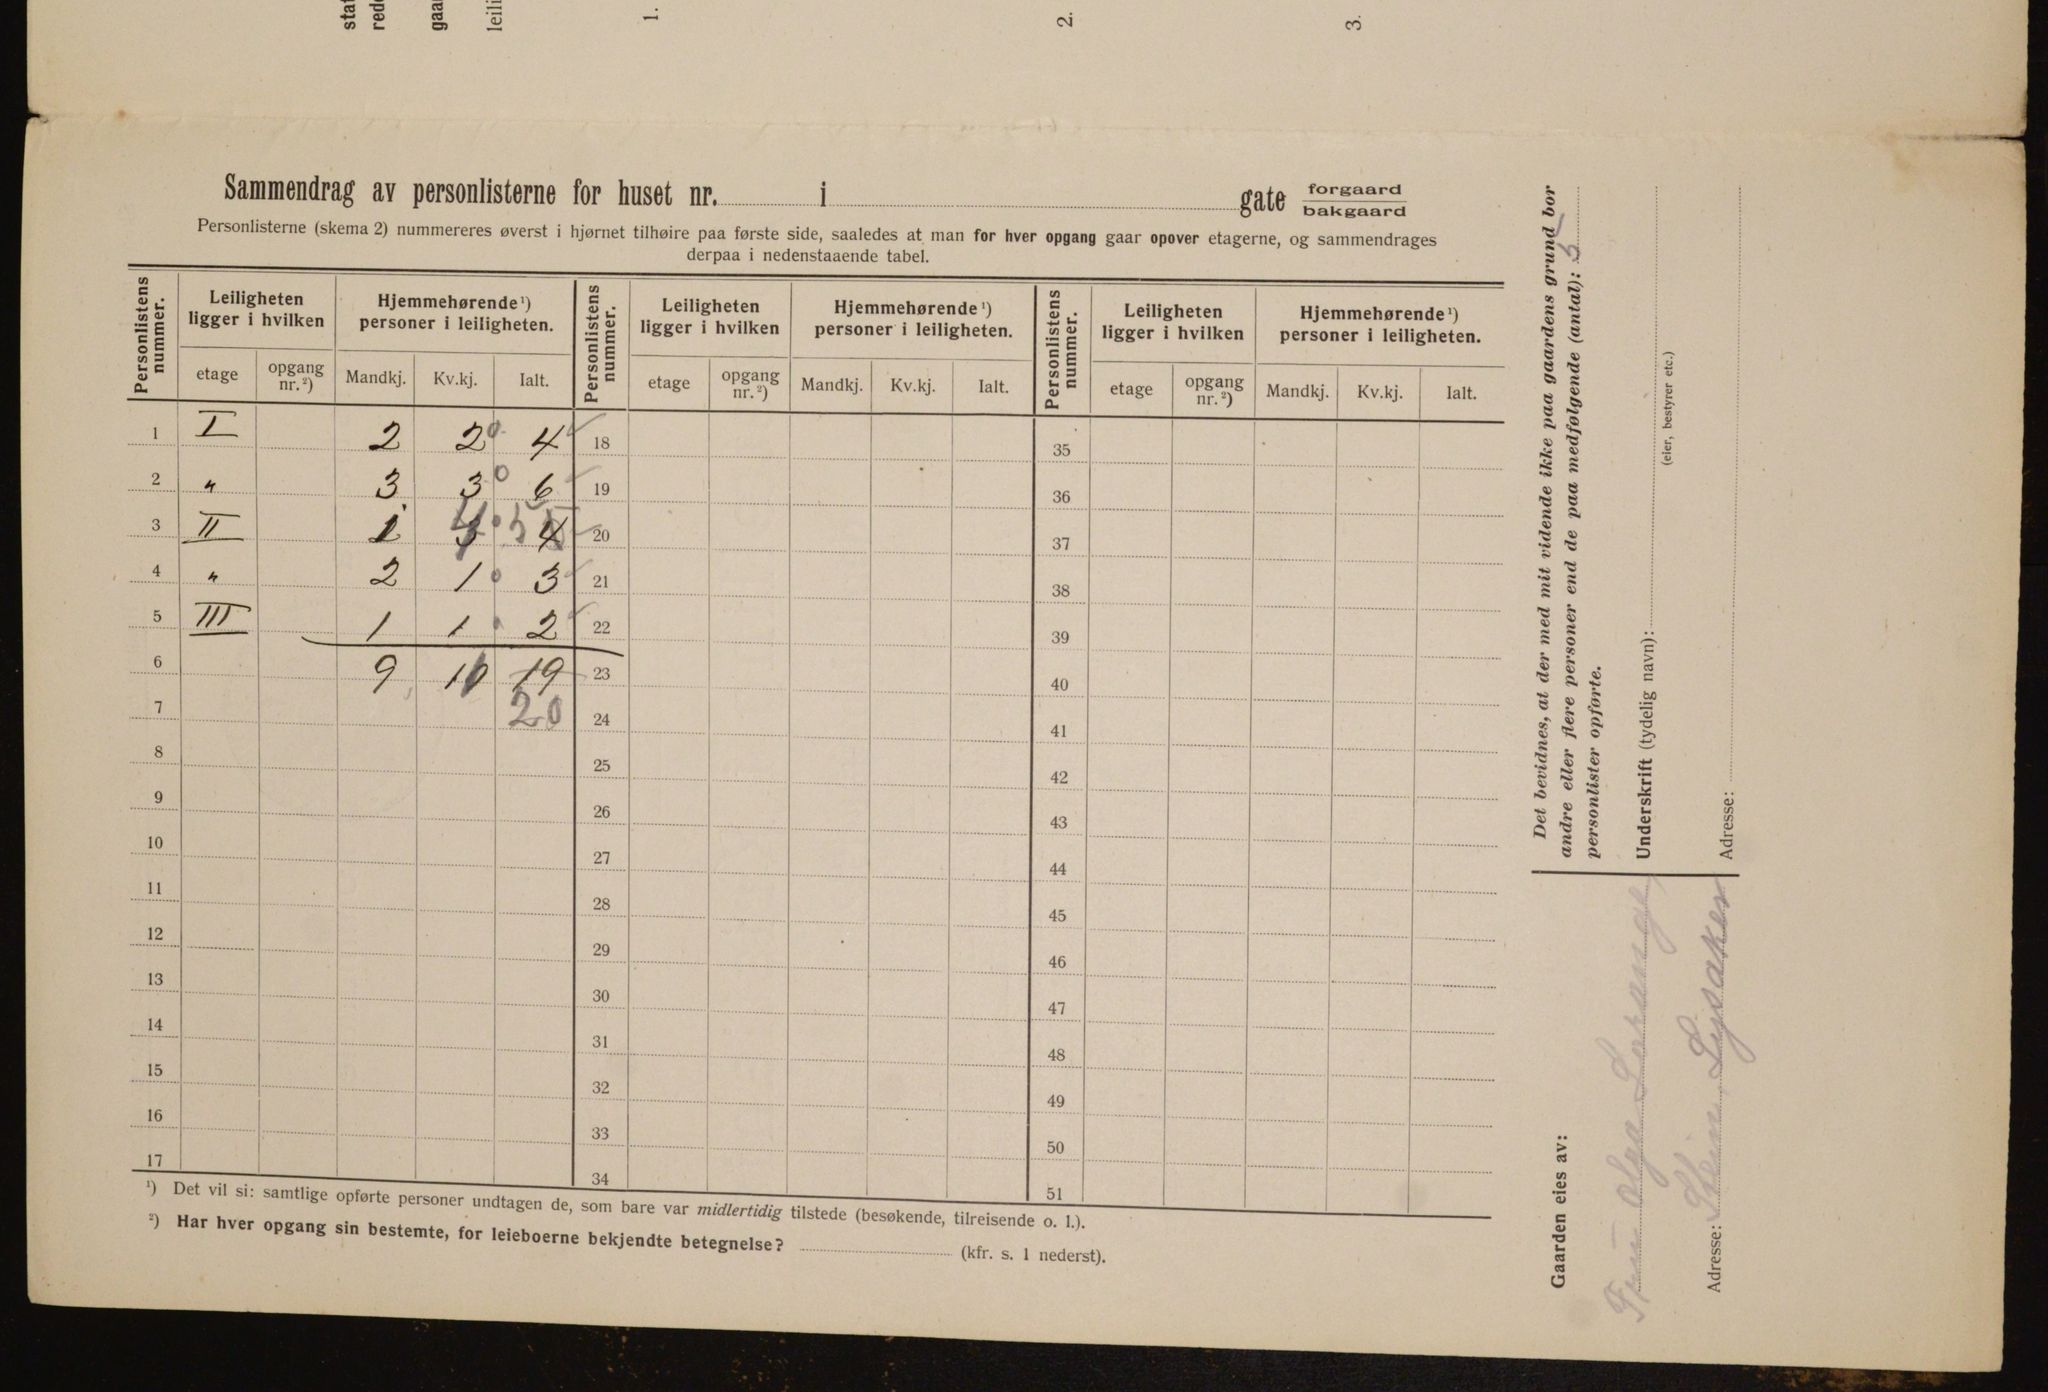 stat
rede
gaar
leili
1.
2.
3.
Sammendrag av personlisterne for huset nr. i gate forgaard
bakgaard
Personlisterne (skema 2) nummereres øverst i hjørnet tilhøire paa første side, saaledes at man for hver opgang gaar opover etagerne, og sammendrages
derpaa i nedenstaaende tabel.
Personlistens nummer. Leiligheten ligger i hvilken Hjemmehørende ¹) personer i leiligheten. Personlistens nummer. Leiligheten ligger i hvilken Hjemmehørende ¹) personer i leiligheten. Personlistens nummer. Leiligheten ligger i hvilken Hjemmehørende ¹) personer i leiligheten.
etage opgang nr. ²) Mandkj. Kv.kj. Ialt. etage opgang nr. ²) Mandkj. Kv.kj. Ialt. etage opgang nr. ²) Mandkj. Kv.kj. Ialt.
1 I 2 2 4 18 35
2 " 3 3 6 19 36
3 II 1 4 5 20 37
4 " 2 1 3 21 38
5 III 1 1 2 22 39
6 9 11 19 23 40
7 20 24 41
8 25 42
9 26 43
10 27 44
11 28 45
12 29 46
13 30 47
14 31 48
15 32 49
16 33 50
17 34 51
¹) Det vil si: samtlige opførte personer undtagen de, som bare var midlertidig tilstede (besøkende, tilreisende o. l.).
²) Har hver opgang sin bestemte, for leieboerne bekjendte betegnelse? (kfr. s. 1 nederst).
Det bevidnes, at der med mit vidende ikke paa gaardens grund bor
andre eller flere personer end de paa medfølgende (antal): 5
personlister opførte.
Underskrift (tydelig navn):
(eier, bestyrer etc.)
Adresse:
Gaarden eies av:
Fru Olga Lorange
Adresse: Lysaker